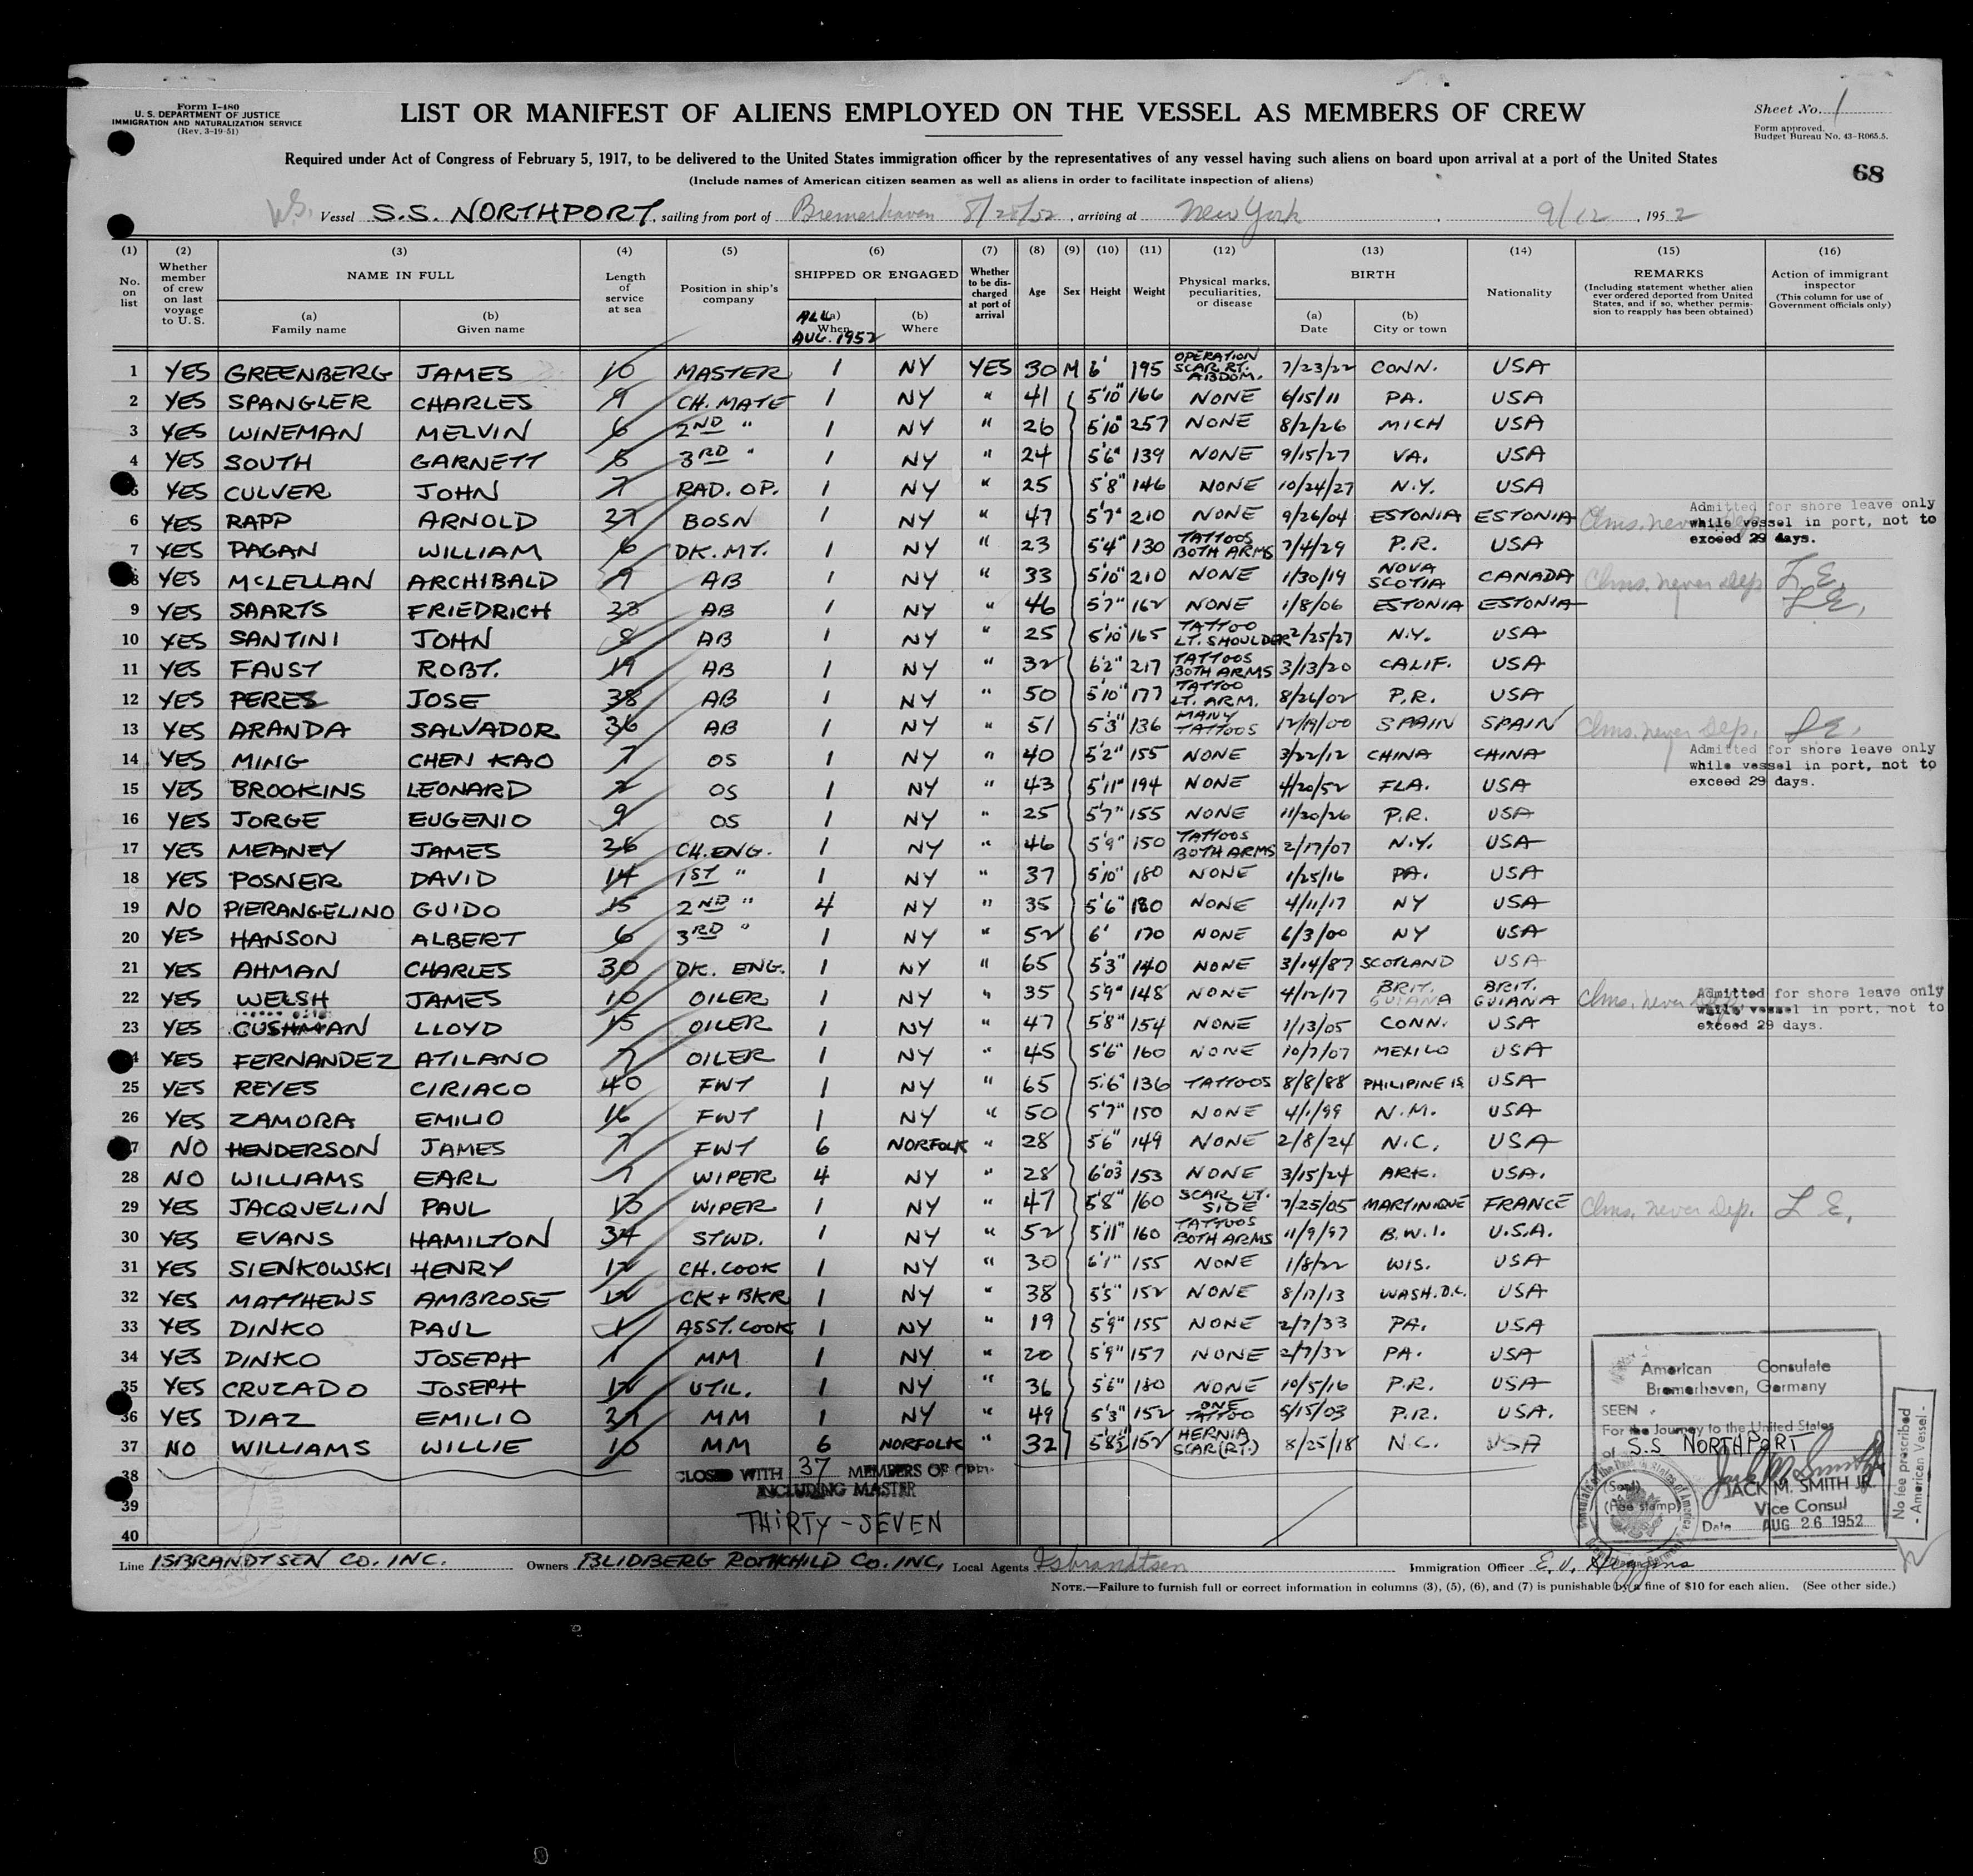 Form I-480
U. S. DEPARTMENT OF JUSTICE
IMMIGRATION AND NATURALIZATION SERVICE
(Rev. 3-19-51)
LIST OR MANIFEST OF ALIENS EMPLOYED ON THE VESSEL AS MEMBERS OF CREW
Sheet No. 1
Form approved.
Budget Bureau No. 43-R065.5.
Required under Act of Congress of February 5, 1917, to be delivered to the United States immigration officer by the representatives of any vessel having such aliens on board upon arrival at a port of the United States
(Include names of American citizen seamen as well as aliens in order to facilitate inspection of aliens)
68
Vessel S.S. NORTHPORT, sailing from port of Bremerhaven 8/28/52, arriving at New York, 9/12, 1952
(1) No. on list
(2) Whether member of crew on last voyage to U. S.
(3) NAME IN FULL
(a) Family name
(b) Given name
(4) Length of service at sea
(5) Position in ship's company
(6) SHIPPED OR ENGAGED
(a) When ALL AUG. 1952
(b) Where
(7) Whether to be discharged at port of arrival
(8) Age
(9) Sex
(10) Height
(11) Weight
(12) Physical marks, peculiarities, or disease
(13) BIRTH
(a) Date
(b) City or town
(14) Nationality
(15) REMARKS (Including statement whether alien ever ordered deported from United States, and if so, whether permission to reapply has been obtained)
(16) Action of immigrant inspector (This column for use of Government officials only)
1 YES GREENBERG JAMES 10 MASTER 1 NY YES 30 M 6' 195 OPERATION SCAR RT. ABDOM. 7/23/22 CONN. USA
2 YES SPANGLER CHARLES 9 CH. MATE 1 NY " 41 5'10" 166 NONE 6/15/11 PA. USA
3 YES WINEMAN MELVIN 6 2ND " 1 NY " 26 5'10" 257 NONE 8/2/26 MICH USA
4 YES SOUTH GARNETT 5 3RD " 1 NY " 24 5'6" 139 NONE 9/15/27 VA. USA
5 YES CULVER JOHN 7 RAD. OP. 1 NY " 25 5'8" 146 NONE 10/24/27 N.Y. USA
6 YES RAPP ARNOLD 27 BOSN 1 NY " 47 5'7" 210 NONE 9/26/04 ESTONIA ESTONIA Clms. never dep. Admitted for shore leave only while vessel in port, not to exceed 29 days.
7 YES PAGAN WILLIAM 6 DK. MT. 1 NY " 23 5'4" 130 TATTOOS BOTH ARMS 7/4/29 P.R. USA
8 YES MCLELLAN ARCHIBALD 9 AB 1 NY " 33 5'10" 210 NONE 1/30/19 NOVA SCOTIA CANADA Clms. never dep
9 YES SAARTS FRIEDRICH 23 AB 1 NY " 46 5'7" 162 NONE 1/8/06 ESTONIA ESTONIA
10 YES SANTINI JOHN 8 AB 1 NY " 25 5'10" 165 TATTOO LT. SHOULDER 2/25/27 N.Y. USA
11 YES FAUST ROBT. 19 AB 1 NY " 32 6'2" 217 TATTOOS BOTH ARMS 3/13/20 CALIF. USA
12 YES PERES JOSE 38 AB 1 NY " 50 5'10" 177 TATTOO LT. ARM. 8/26/02 P.R. USA
13 YES ARANDA SALVADOR 36 AB 1 NY " 51 5'3" 136 MANY TATTOOS 12/19/00 SPAIN SPAIN Clms. never dep.
14 YES MING CHEN KAO 7 OS 1 NY " 40 5'2" 155 NONE 3/22/12 CHINA CHINA Admitted for shore leave only while vessel in port, not to exceed 29 days.
15 YES BROOKINS LEONARD 2 OS 1 NY " 43 5'11" 194 NONE 4/20/52 FLA. USA
16 YES JORGE EUGENIO 9 OS 1 NY " 25 5'7" 155 NONE 11/20/26 P.R. USA
17 YES MEANEY JAMES 26 CH. ENG. 1 NY " 46 5'9" 150 TATTOOS BOTH ARMS 2/17/07 N.Y. USA
18 YES POSNER DAVID 14 1ST " 1 NY " 37 5'10" 180 NONE 1/25/16 PA. USA
19 NO PIERANGELINO GUIDO 15 2ND " 4 NY " 35 5'6" 180 NONE 4/11/17 NY USA
20 YES HANSON ALBERT 6 3RD " 1 NY " 52 6' 170 NONE 6/3/00 NY USA
21 YES AHMAN CHARLES 30 DK. ENG. 1 NY " 65 5'3" 140 NONE 3/14/87 SCOTLAND USA
22 YES WELSH JAMES 10 OILER 1 NY " 35 5'9" 148 NONE 4/12/17 BRIT. GUIANA BRIT. GUIANA Clms. never dep. Admitted for shore leave only while vessel in port, not to exceed 29 days.
23 YES CUSHMAN LLOYD 15 OILER 1 NY " 47 5'8" 154 NONE 1/13/05 CONN. USA
24 YES FERNANDEZ ATILANO 7 OILER 1 NY " 45 5'6" 160 NONE 10/7/07 MEXICO USA
25 YES REYES CIRIACO 40 FWT 1 NY " 65 5'6" 136 TATTOOS 8/8/88 PHILIPINE IS USA
26 YES ZAMORA EMILIO 16 FWT 1 NY " 50 5'7" 150 NONE 4/1/99 N.M. USA
27 NO HENDERSON JAMES 7 FWT 6 NORFOLK " 28 5'6" 149 NONE 2/8/24 N.C. USA
28 NO WILLIAMS EARL 7 WIPER 4 NY " 28 6'03 153 NONE 3/15/24 ARK. USA.
29 YES JACQUELIN PAUL 13 WIPER 1 NY " 47 5'8" 160 SCAR LT. SIDE 7/25/05 MARTINIQUE FRANCE Clms. never dep.
30 YES EVANS HAMILTON 34 STWD. 1 NY " 52 5'11" 160 TATTOOS BOTH ARMS 11/9/97 B.W.I. U.S.A.
31 YES SIENKOWSKI HENRY 12 CH. COOK 1 NY " 30 6'1" 155 NONE 1/8/22 WIS. USA
32 YES MATTHEWS AMBROSE 12 CK + BKR 1 NY " 38 5'5" 152 NONE 8/17/13 WASH. D.C. USA
33 YES DINKO PAUL 1 ASST. COOK 1 NY " 19 5'9" 155 NONE 2/7/33 PA. USA
34 YES DINKO JOSEPH 1 MM 1 NY " 20 5'9" 157 NONE 2/7/32 PA. USA
35 YES CRUZADO JOSEPH 12 UTIL. 1 NY " 36 5'6" 180 NONE 10/5/16 P.R. USA
36 YES DIAZ EMILIO MM 1 NY " 49 5'3" 152 ONE TATTOO 5/15/03 P.R. USA.
37 NO WILLIAMS WILLIE 10 MM 6 NORFOLK " 32 5'8½ 152 HERNIA SCAR (RT.) 8/25/18 N.C. USA
38 CLOSED WITH 37 MEMBERS OF CREW
INCLUDING MASTER
39
THIRTY-SEVEN
40
American Consulate
Bremerhaven, Germany
SEEN
For the Journey to the United States
of S.S NORTHPORT
(Seal)
JACK M. SMITH JR.
(Fee stamp)
Vice Consul
Date AUG 26 1952
No fee prescribed
- American Vessel -
Line ISBRANDTSEN CO. INC. Owners BLIDBERG ROTHCHILD CO. INC. Local Agents Isbrandtsen Immigration Officer E. J. Higgins
NOTE.—Failure to furnish full or correct information in columns (3), (5), (6), and (7) is punishable by a fine of $10 for each alien. (See other side.)